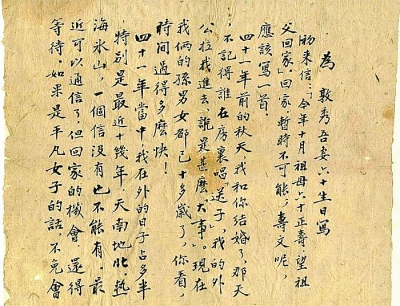 為敦秀吾妻六十生日寫
初來信:「今年十月祖母六十正壽,望祖
父回家」回家暫時不可能,壽文呢,
應該寫一首。
四十一年前的秋天,我和你結婚了,那天
不記得誰在房裏唱「送子」,我的外
公拉我進去,說是甚麽「大事」。現在
我倆的孫男女都已十多歲了,你看,
時間過得多麽快!
四十一年當中,我在外的日子占多半
特別是最近十幾年,天南地北,熱
海氷山,一個信沒有也不能有。最
近可以通信了,但回家的機會還得
等待。如果是平凡女子的話不免會